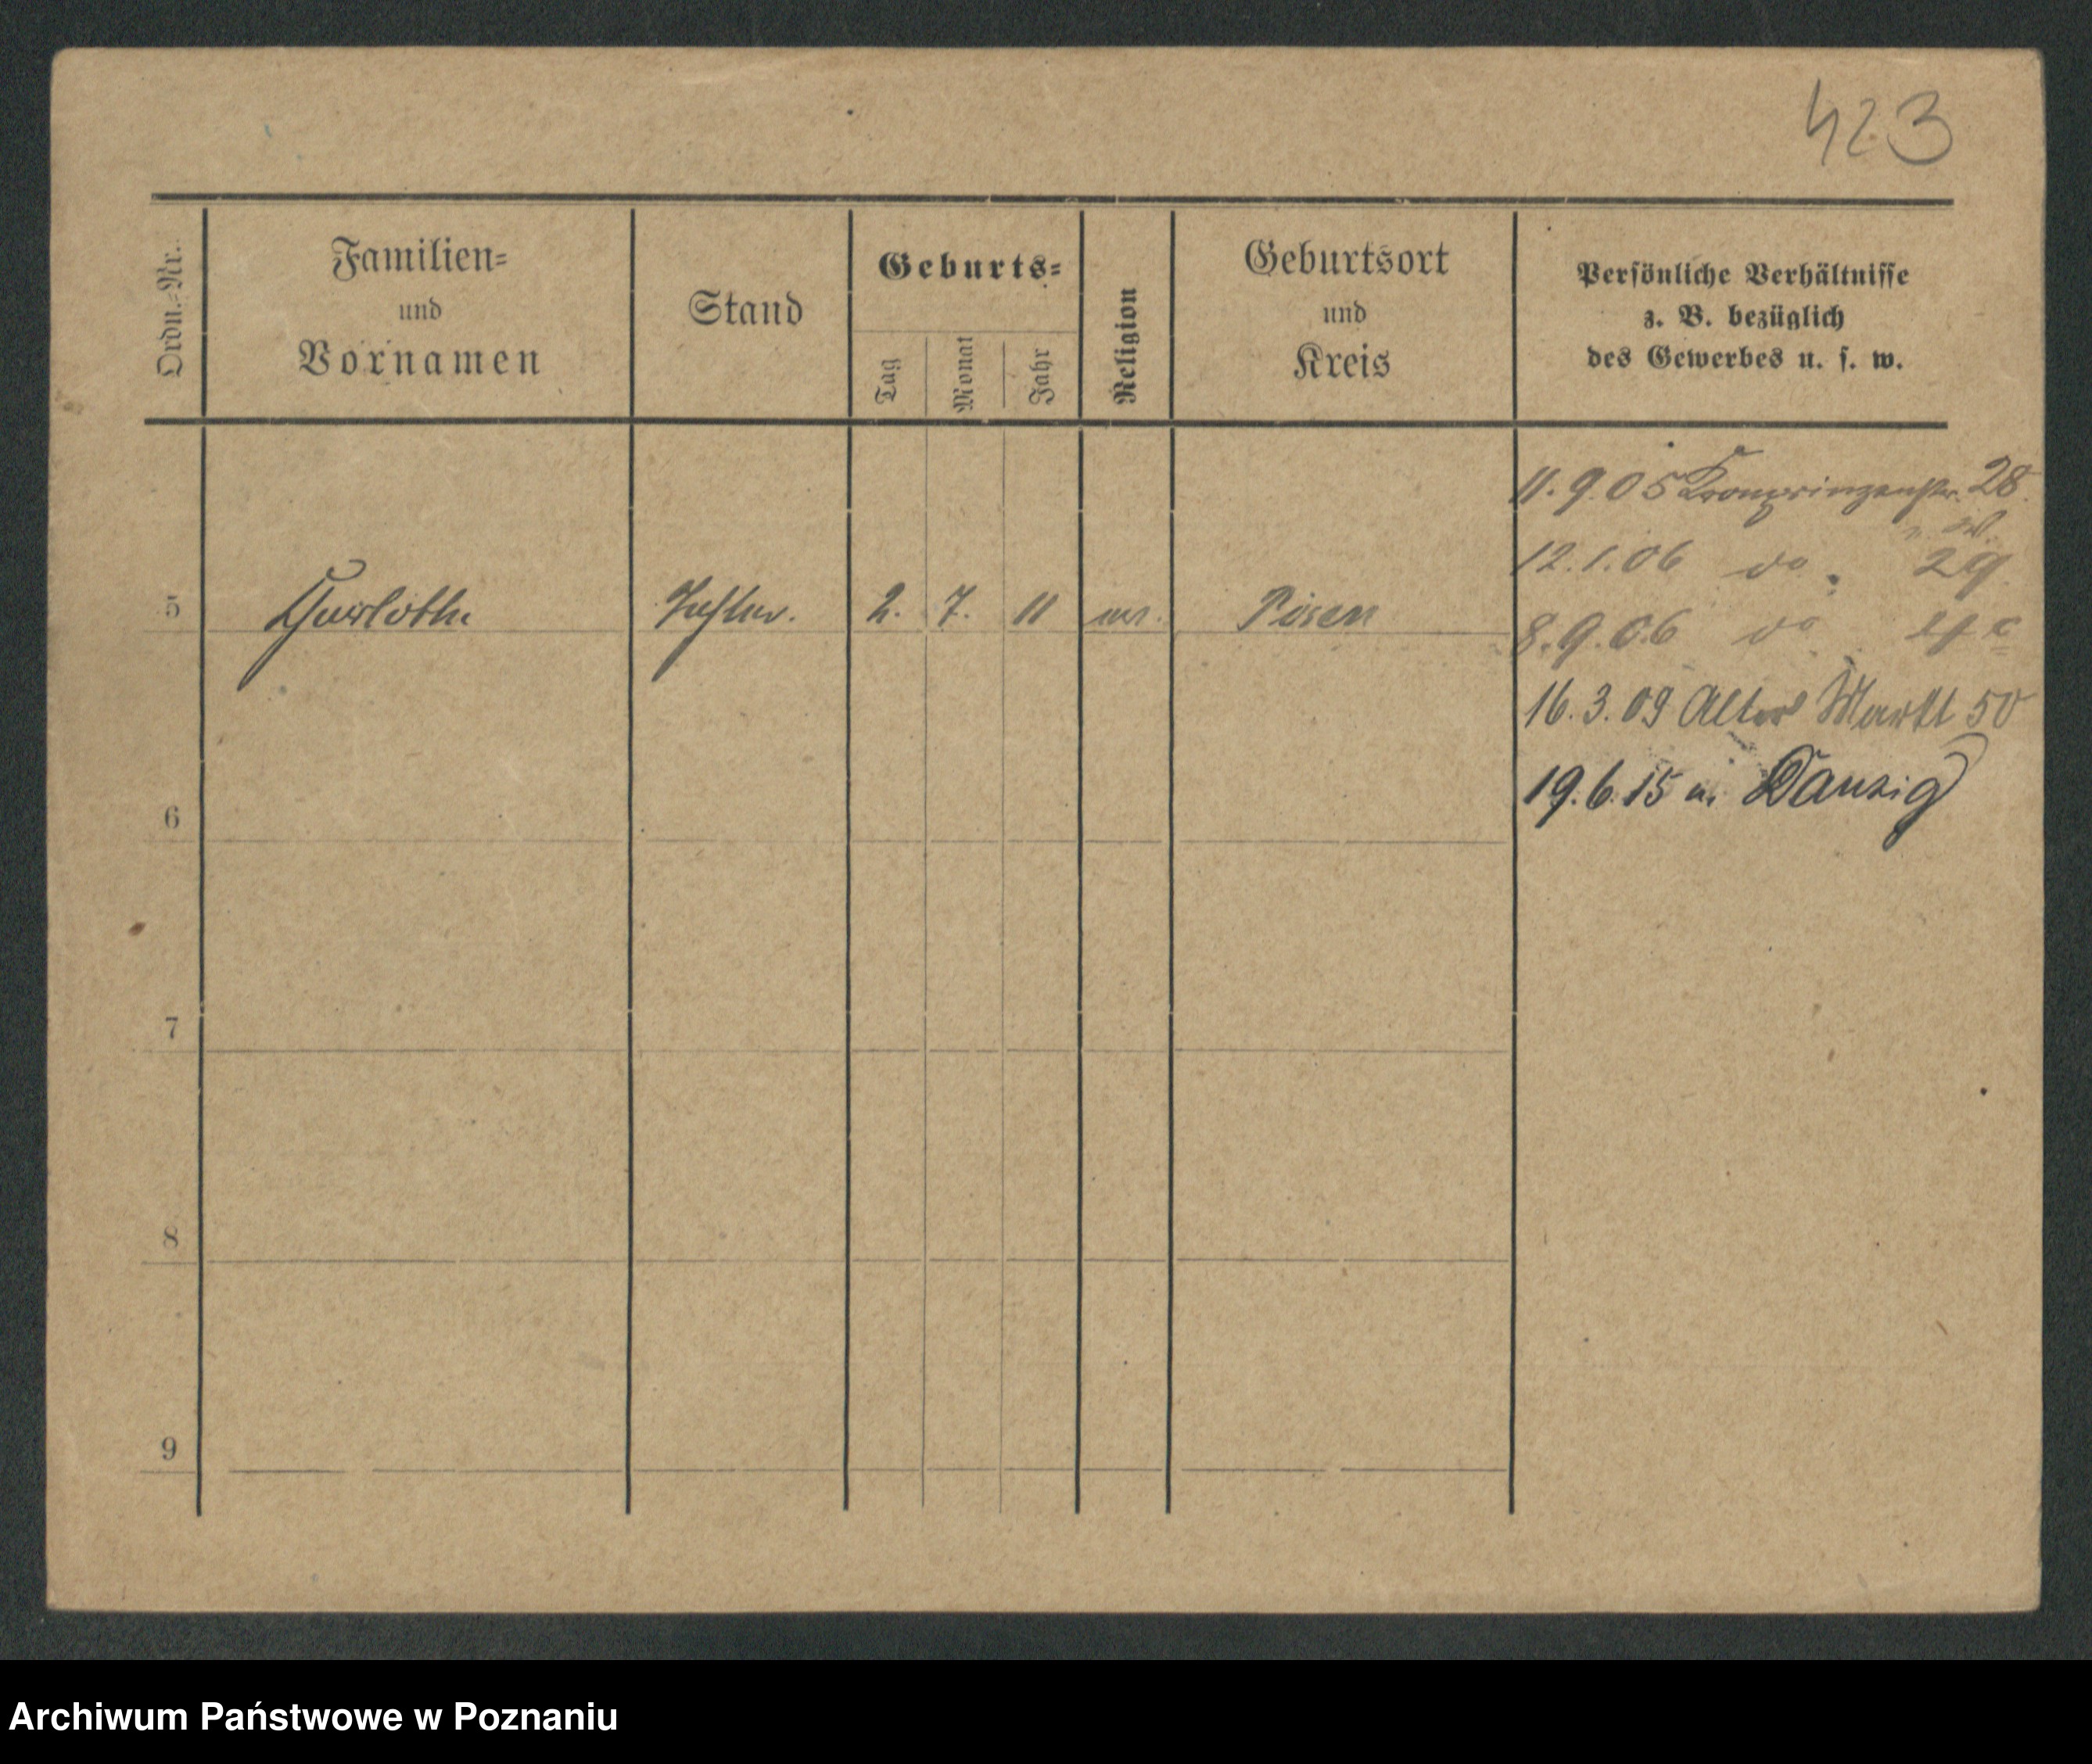 423
Ordn.-Nr.
Familien-
und
Vornamen
Stand
Geburts-
Tag
Monat
Jahr
Religion
Geburtsort
und
Kreis
Persönliche Verhältnisse
z. B. bezüglich
des Gewerbes u. s. w.
11.9.05 Kronprinzenstr. 28.
12.1.06 do. 29
5 Charlotte Tochter. 2. 7. 11 Posen
8.9.06 do
16.3.09 Alter Markt 50
19.6.15 n. Danzig
6
7
8
9
Archiwum Państwowe w Poznaniu